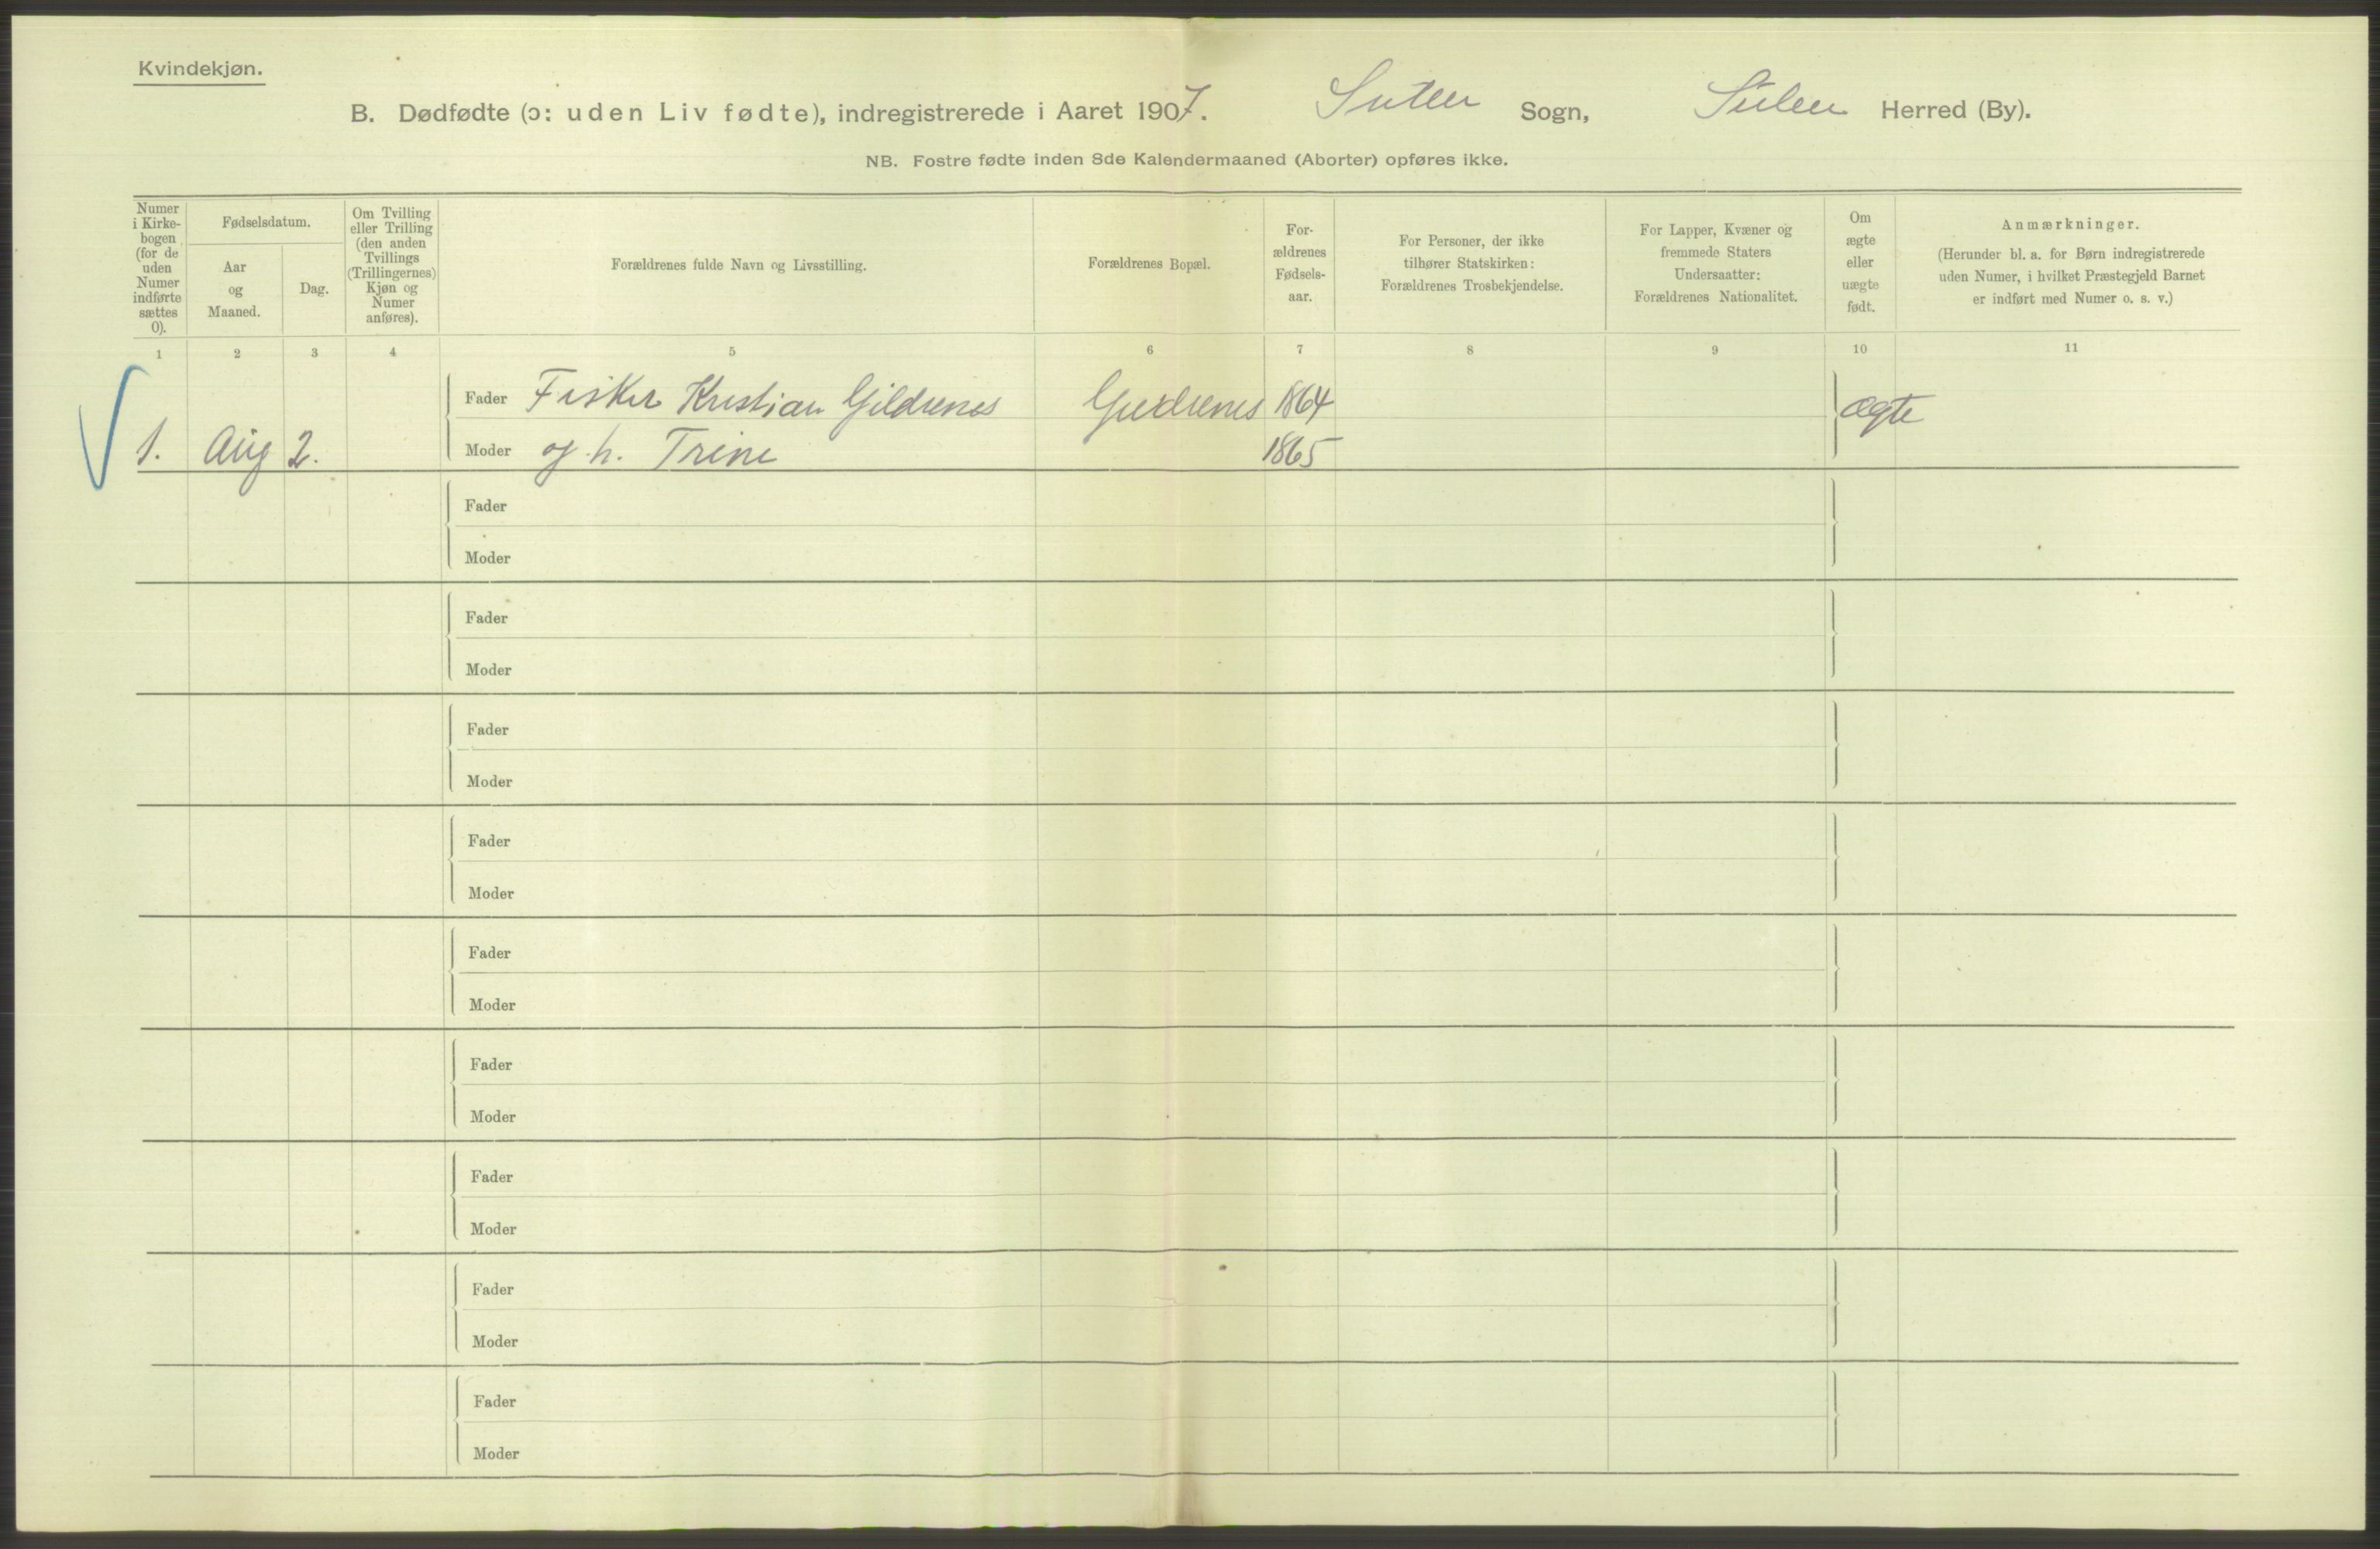 Kvindekjøn.
B. Dødfødte (ɔ: uden Liv fødte), indregistrerede i Aaret 1907. Sulen Sogn, Sulen Herred (By).
NB. Fostre fødte inden 8de Kalendermaaned (Aborter) opføres ikke.
Numer
i Kirke-
bogen
(for de
uden
Numer
indførte
sættes
0).
Fødselsdatum.
Aar
og
Maaned.
Dag.
Om Tvilling
eller Trilling
(den anden
Tvillings
(Trillingernes)
Kjøn og
Numer
anføres).
Forældrenes fulde Navn og Livsstilling.
Forældrenes Bopæl.
For-
ældrenes
Fødsels-
aar.
For Personer, der ikke
tilhører Statskirken:
Forældrenes Trosbekjendelse.
For Lapper, Kvæner og
fremmede Staters
Undersaatter:
Forældrenes Nationalitet.
Om
ægte
eller
uægte
født.
Anmærkninger.
(Herunder bl. a. for Børn indregistrerede
uden Numer, i hvilket Præstegjeld Barnet
er indført med Numer o. s. v.)
1 2 3 4 5 6 7 8 9 10 11
Fader Fisker Kristian Gildrenes 1864 ægte
1. Aug 2. Moder og h. Trine 1865
Fader
Moder
Fader
Moder
Fader
Moder
Fader
Moder
Fader
Moder
Fader
Moder
Fader
Moder
Fader
Moder
Fader
Moder